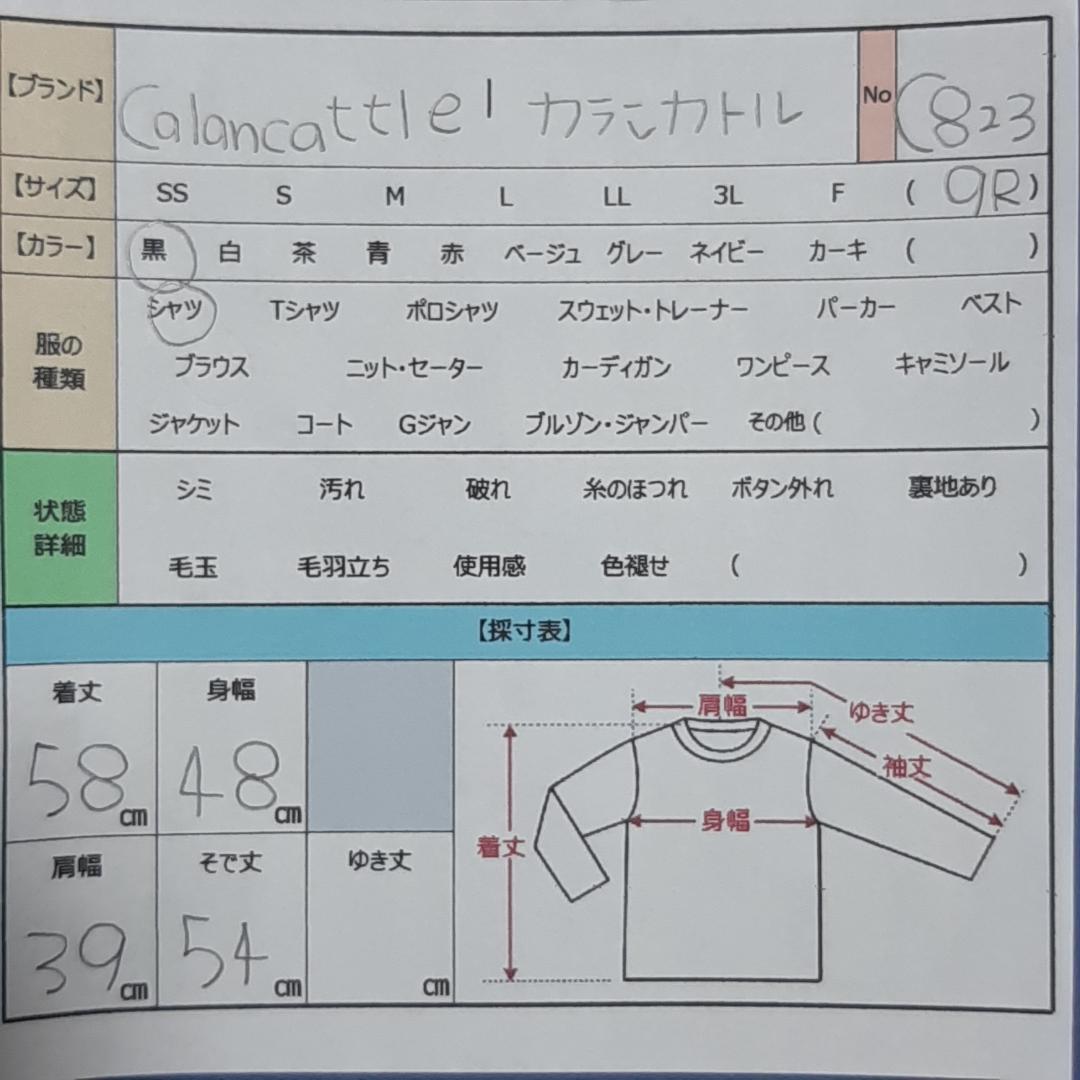 【ブランド】 Calancattle| カランカトル No C823
【サイズ】 SS S M L LL 3L F ( 9R )
【カラー】 黒 白 茶 青 赤 ベージュ グレー ネイビー カーキ ( )
服の種類 シャツ Tシャツ ポロシャツ スウェット・トレーナー パーカー ベスト
ブラウス ニット・セーター カーディガン ワンピース キャミソール
ジャケット コート Gジャン ブルゾン・ジャンパー その他 ( )
状態詳細 シミ 汚れ 破れ 糸のほつれ ボタン外れ 裏地あり
毛玉 毛羽立ち 使用感 色褪せ ( )
【採寸表】
着丈 身幅
58 cm 48 cm
肩幅 そで丈 ゆき丈
39 cm 54 cm cm
肩幅 ゆき丈
袖丈
身幅
着丈